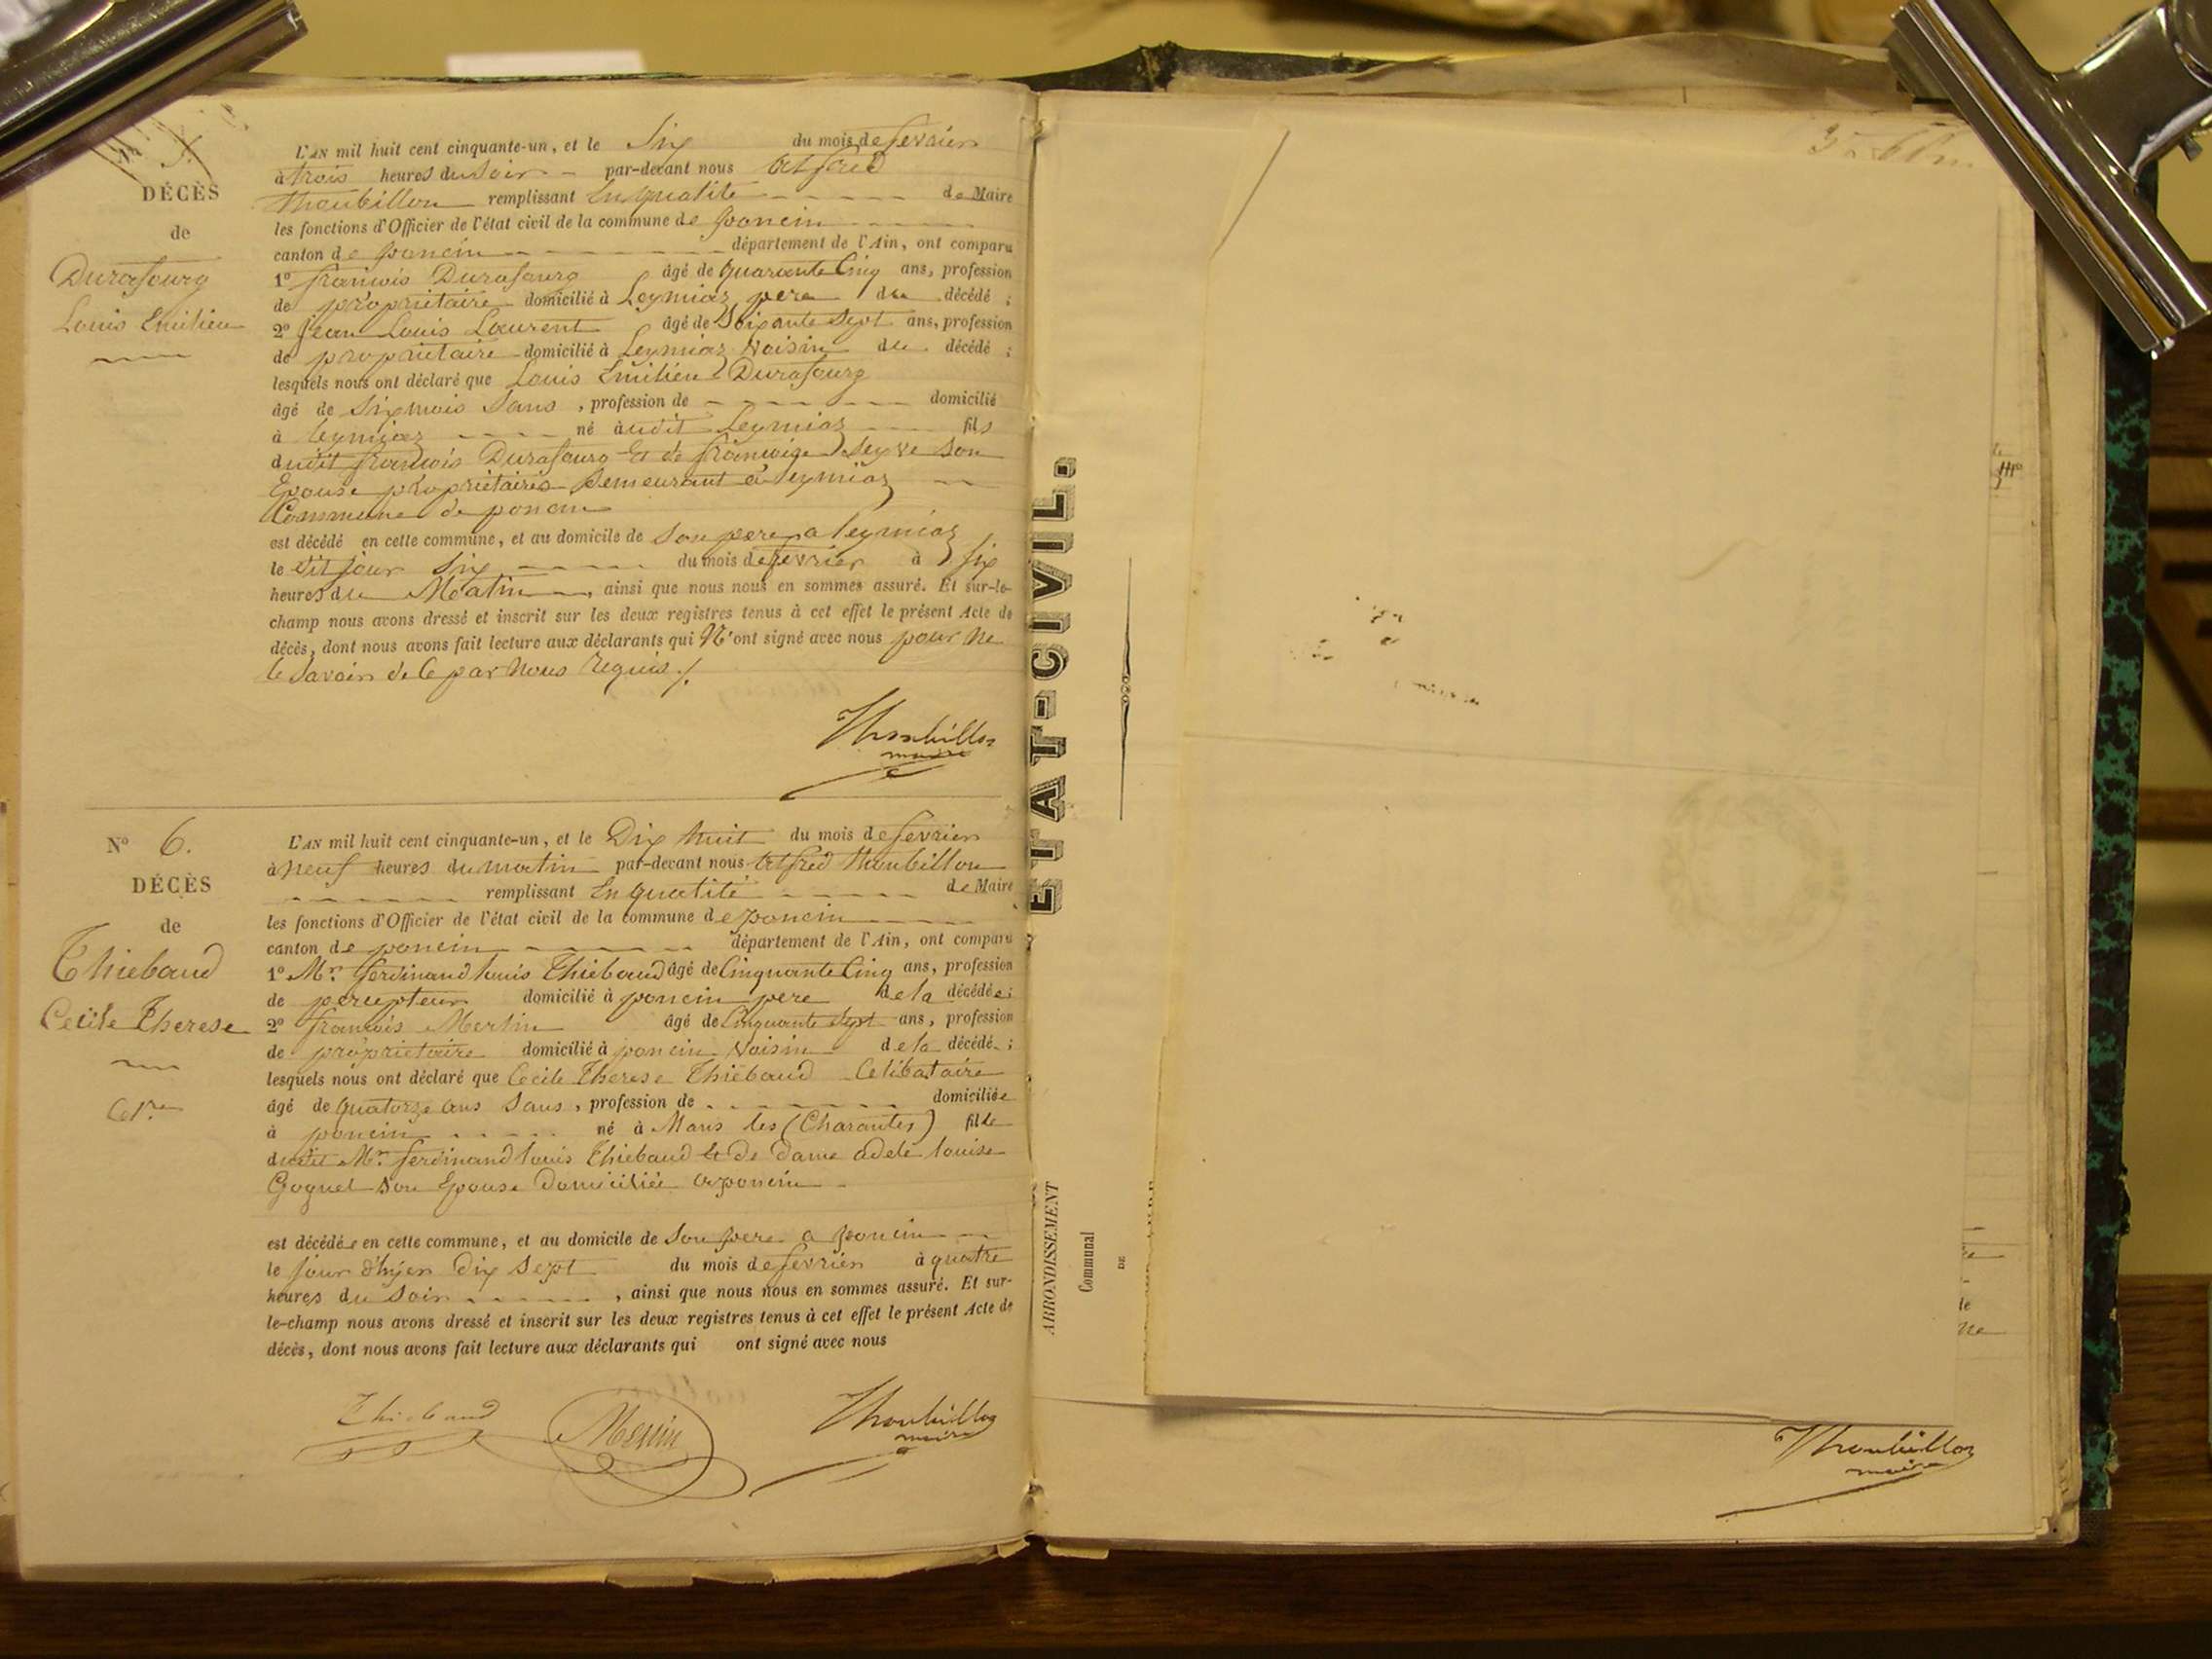 N° 5.
DÉCÈS
de
Durafourg
Louis Emilien
L'AN mil huit cent cinquante-un, et le Six du mois de fevrier
à trois heures du Soir par-devant nous Alfred
Thoubillon remplissant En qualité de Maire
les fonctions d'Officier de l'état civil de la commune de poncin
canton de poncin département de l'Ain, ont comparu
1° françois Durafourg âgé de quarante Cinq ans, profession
de propriétaire domicilié à Leymiaz pere du décédé ;
2° Jean Louis Laurent âgé de Soixante Sept ans, profession
de propriétaire domicilié à Leymiaz Voisin du décédé ;
lesquels nous ont déclaré que Louis Emilien Durafourg
âgé de Six mois Sans , profession de domicilié
à Leymiaz né audit Leymiaz fils
dudit françois Durafourg Et de françoise Seyve Son
Epouse propriétaires Demeurant à Leymiaz
Commune de poncin
est décédé en cette commune, et au domicile de Son pere a Leymiaz
le dit jour Six du mois de fevrier à Six
heures du Matin , ainsi que nous nous en sommes assuré. Et sur-le-
champ nous avons dressé et inscrit sur les deux registres tenus à cet effet le présent Acte de
décès, dont nous avons fait lecture aux déclarants qui N'ont signé avec nous pour ne
le Savoir de Ce par Nous Requis ./.
Thoubillon
maire
N° 6.
DÉCÈS
de
Thiebaud
Cecile Therese
Cel.re
L'AN mil huit cent cinquante-un, et le Dix huit du mois de fevrier
à neuf heures du matin par-devant nous Alfred Thoubillon
remplissant En qualité de Maire
les fonctions d'Officier de l'état civil de la commune de poncin
canton de poncin département de l'Ain, ont comparu
1° Mr. ferdinand louis Thiebaud âgé de Cinquante Cinq ans, profession
de percepteur domicilié à poncin pere de la décédée ;
2° françois Merlin âgé de Cinquante Sept ans, profession
de propriétaire domicilié à poncin Voisin de la décédé ;
lesquels nous ont déclaré que Cecile Therese Thiebaud Celibataire
âgé de quatorze ans Sans , profession de domiciliée
à poncin né à Mans les (Charantes) fille
dudit Mr. ferdinand louis Thiebaud Et De Dame adele louise
Goguel Son Epouse Domiciliée a poncin
est décédée en cette commune, et au domicile de Son pere a poncin
le jour d'hyer Dix Sept du mois de fevrier à quatre
heures du Soir , ainsi que nous nous en sommes assuré. Et sur-
le-champ nous avons dressé et inscrit sur les deux registres tenus à cet effet le présent Acte de
décès, dont nous avons fait lecture aux déclarants qui ont signé avec nous
Thiebaud Merlin Thoubillon
maire
ETAT-CIVIL.
ARRONDISSEMENT
Communal
DE
Thoubillon
maire